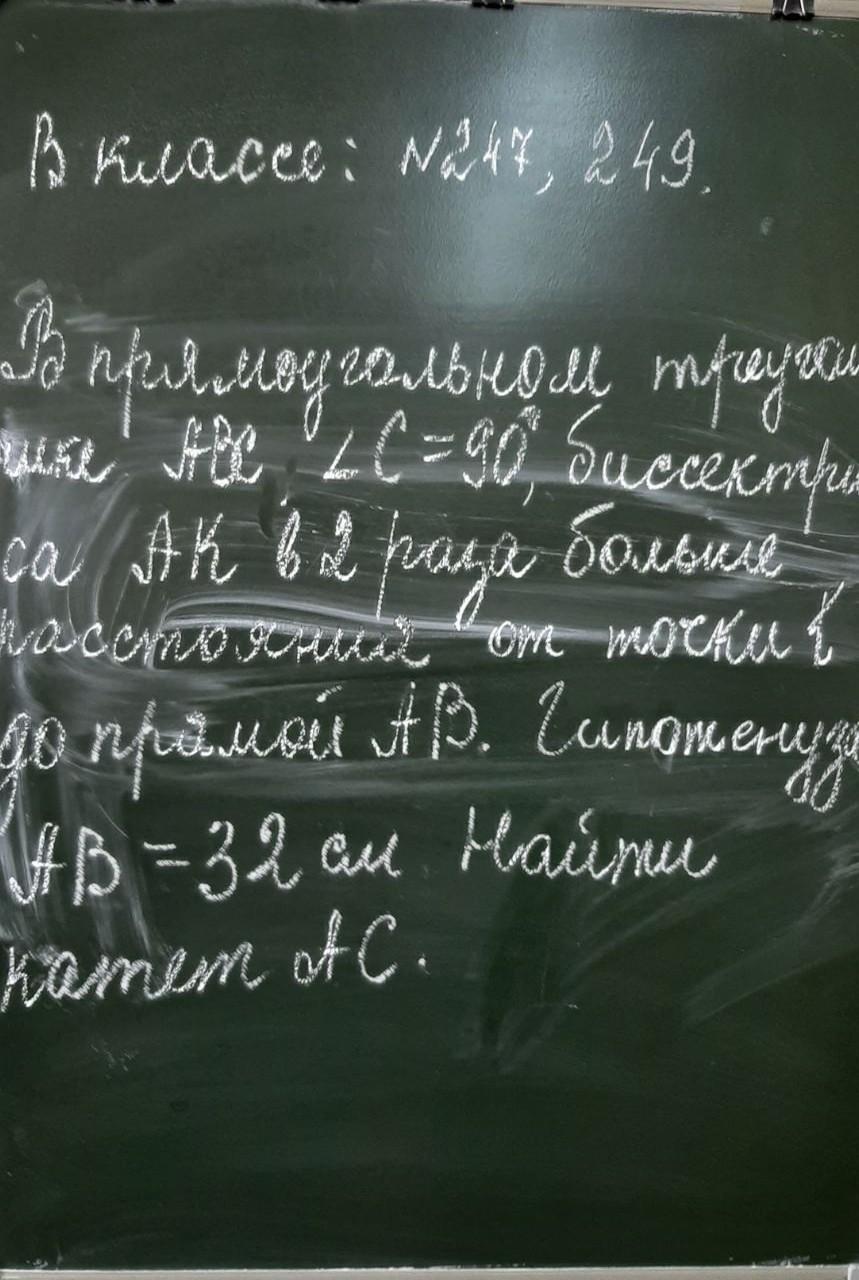 В классе: №247, 249.
В прямоугольном треуголь
нике АВС, ∠С=90°, биссектри
са АК в 2 раза больше
расстояния от точки К
до прямой АВ. Гипотенуза
АВ = 32 см Найти
катет АС.